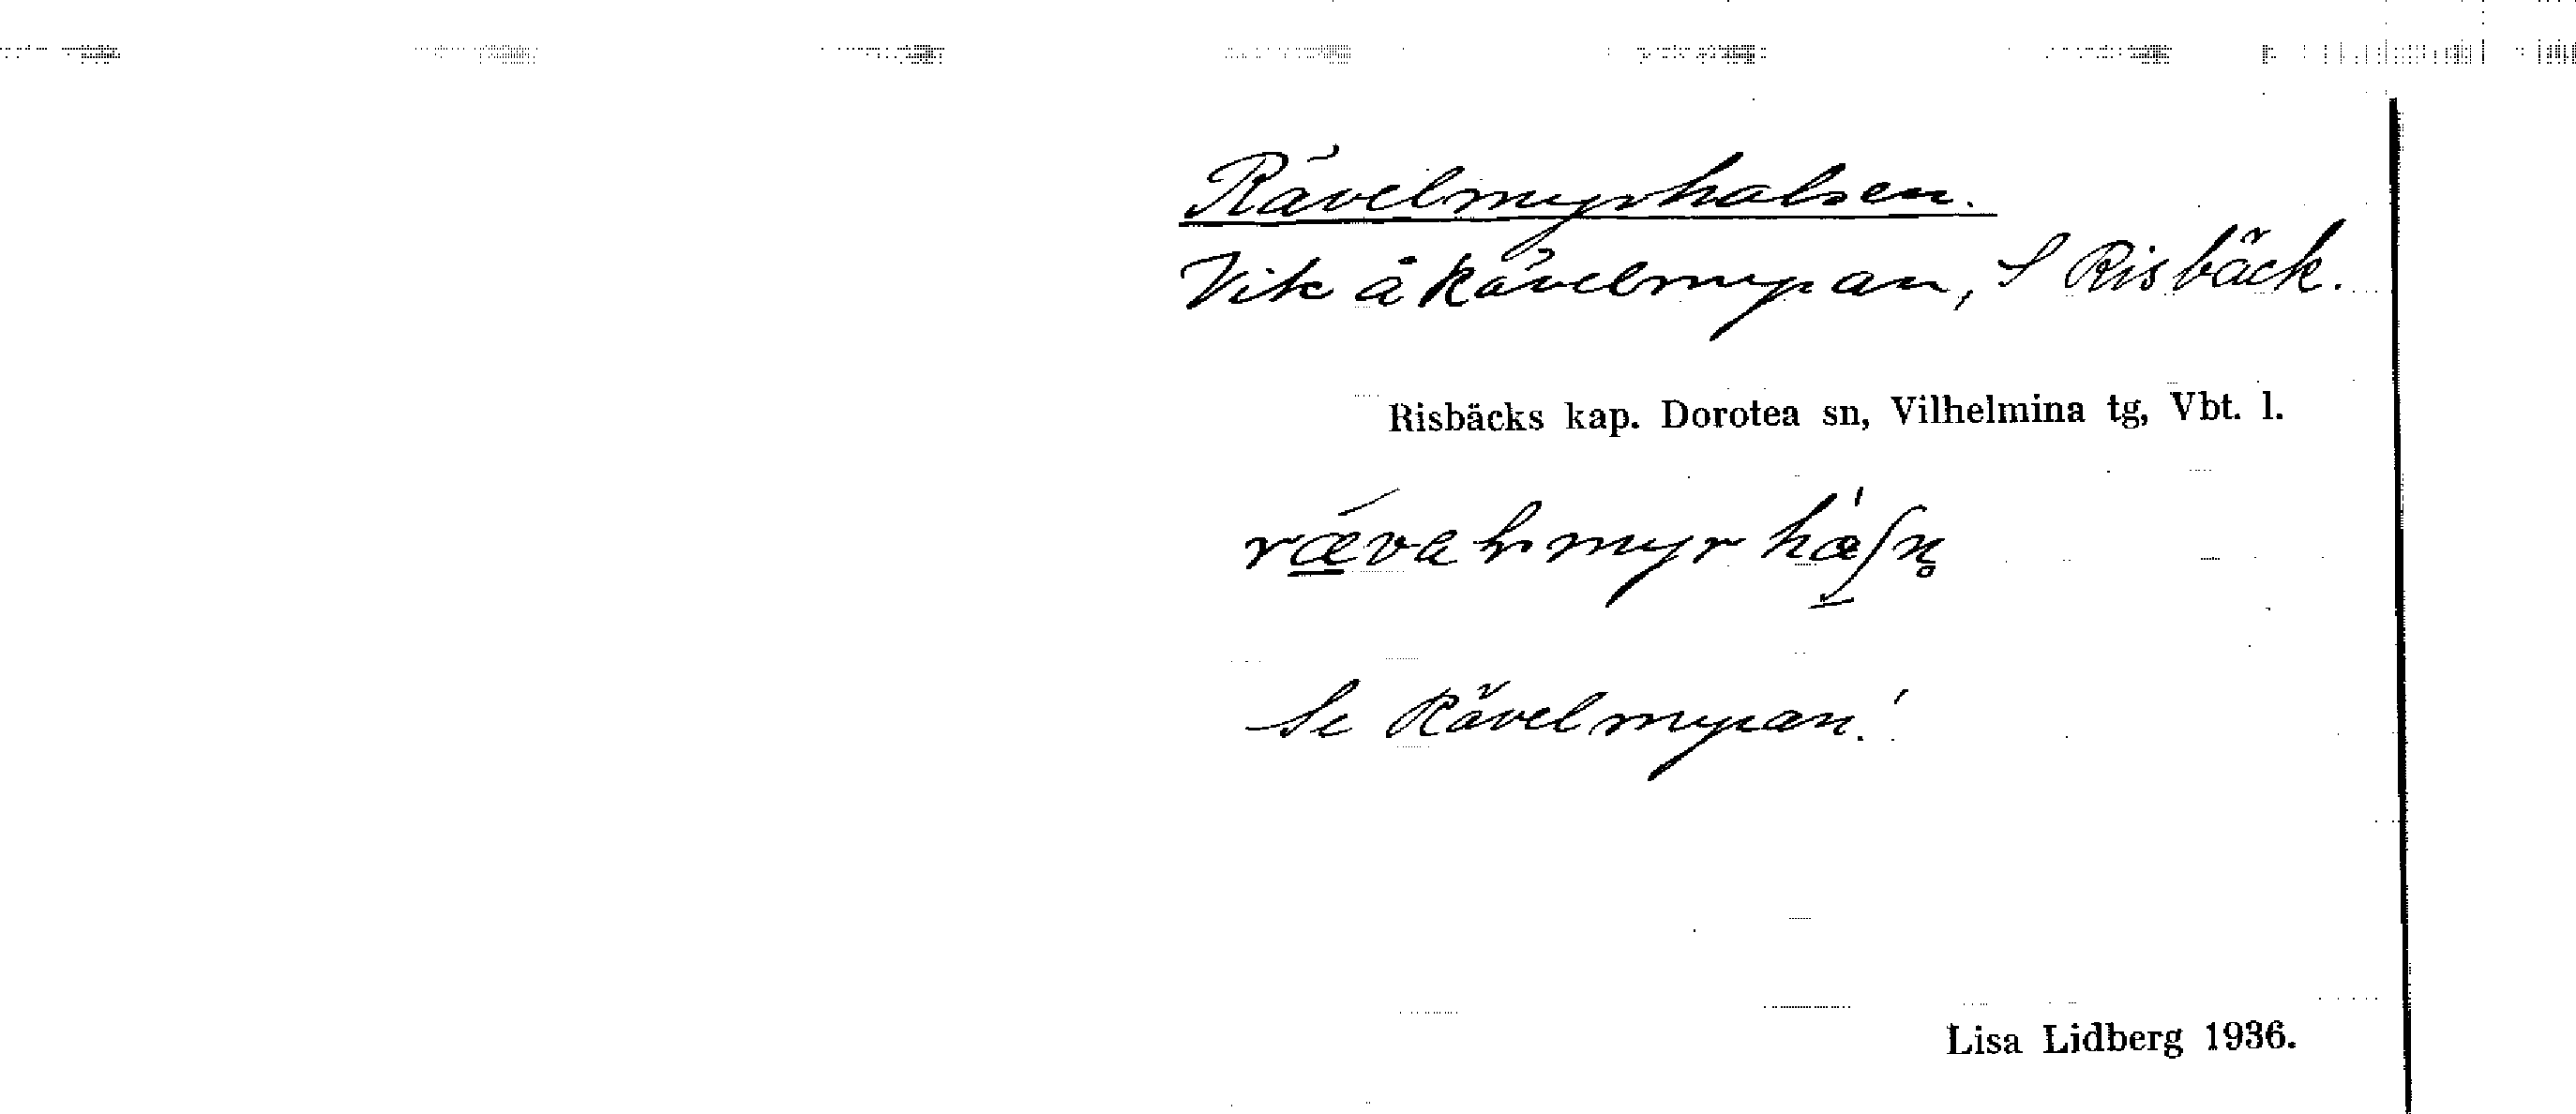 Rävelmyrhalsen.
Vik å Rävelmyran, S Risbäck.
Risbäcks kap. Dorotea sn, Vilhelmina tg, Vbt. l.
Se Rävelmyran!
Lisa Lidberg 1936.